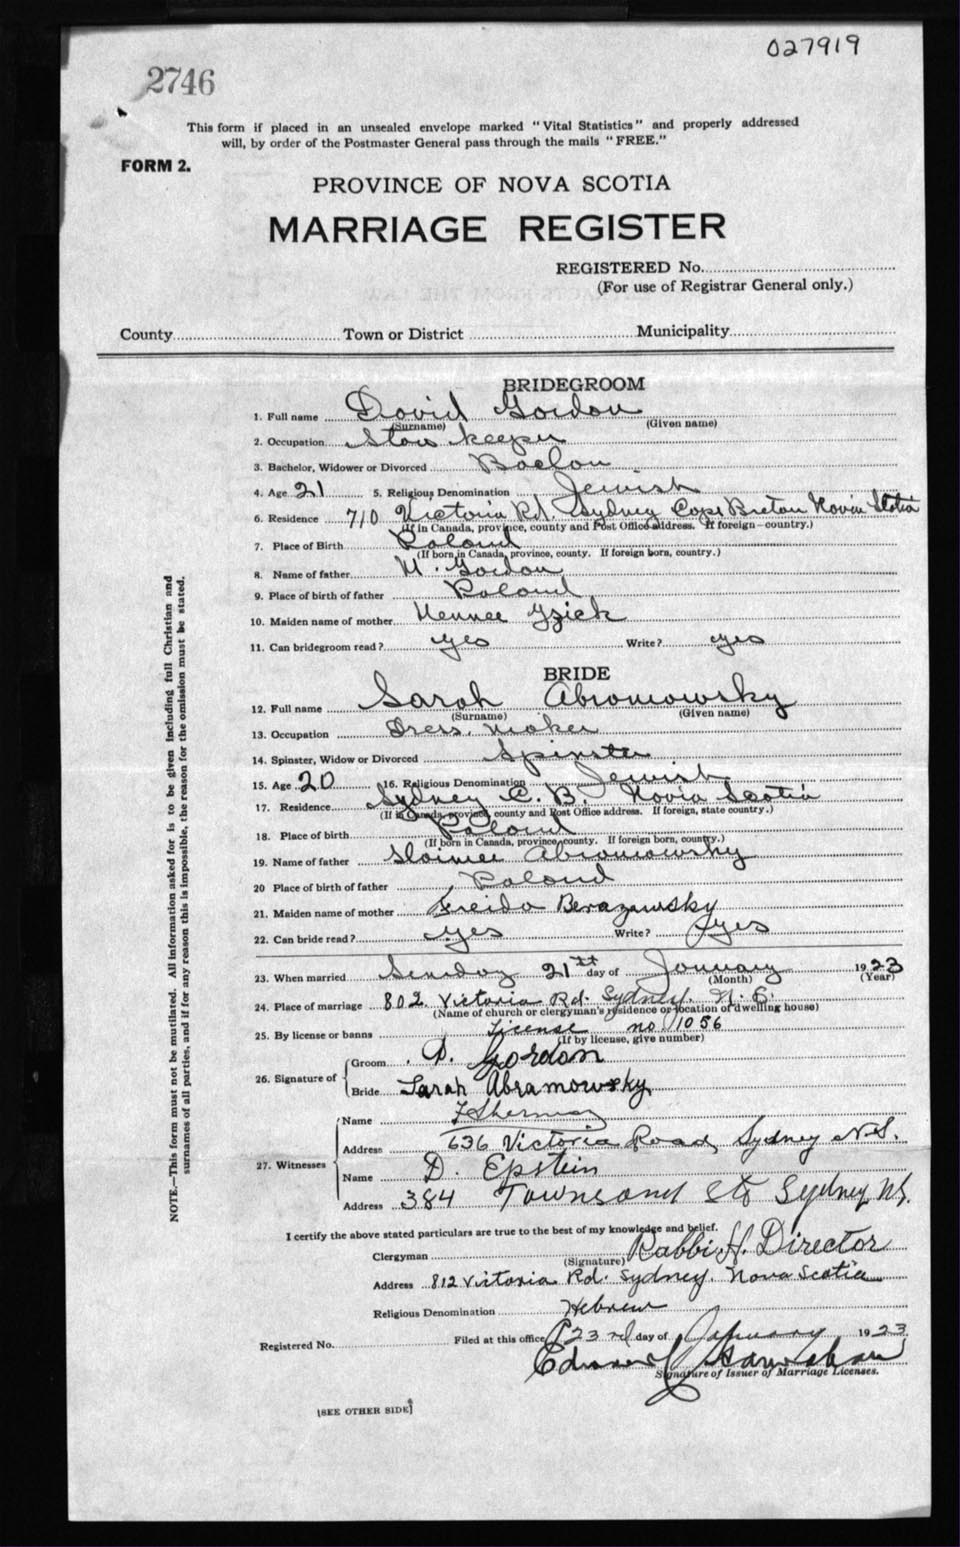 027919
2746
This form if placed in an unsealed envelope marked "Vital Statistics" and properly addressed
will, by order of the Postmaster General pass through the mails "FREE."
FORM 2.
PROVINCE OF NOVA SCOTIA
MARRIAGE REGISTER
REGISTERED No.
(For use of Registrar General only.)
County Town or District Municipality
BRIDEGROOM
1. Full name David Gordon
(Surname) (Given name)
2. Occupation Store keeper
3. Bachelor, Widower or Divorced
4. Age 21 5. Religious Denomination Jewish
6. Residence 710 Victoria Rd Sydney Cape Breton Novia Scotia
(If in Canada, province, county and Post Office address. If foreign—country.)
7. Place of Birth Poland
(If born in Canada, province, county. If foreign born, country.)
8. Name of father Gordon
9. Place of birth of father Poland
10. Maiden name of mother
11. Can bridegroom read? yes Write? yes
BRIDE
12. Full name Sarah Abromowsky
(Surname) (Given name)
13. Occupation Dress maker
14. Spinster, Widow or Divorced Spinster
15. Age 20 16. Religious Denomination Jewish
17. Residence Sydney C. B. Novia Scotia
(If in Canada, province, county and Post Office address. If foreign, state country.)
18. Place of birth Poland
(If born in Canada, province, county. If foreign born, country.)
19. Name of father Abromowsky
20 Place of birth of father Poland
21. Maiden name of mother Freida
22. Can bride read? yes Write? yes
23. When married Sunday 21st day of January 1923
(Month) (Year)
24. Place of marriage 802 Victoria Rd. Sydney.
(Name of church or clergyman's residence or location of dwelling house)
25. By license or banns License no 1056
(If by license, give number)
26. Signature of Groom D. Gordon
Bride Sarah Abramowsky
27. Witnesses Name
Address 636 Victoria Road, Sydney N.S.
Name D. Epstein
Address 384 Townsend St Sydney N.S.
I certify the above stated particulars are true to the best of my knowledge and belief.
Clergyman Rabbi H. Director
(Signature)
Address 812 Victoria Rd. Sydney. Nova Scotia
Religious Denomination Hebrew
Registered No. Filed at this office 23rd day of January 1923
Signature of Issuer of Marriage Licenses.
[SEE OTHER SIDE]
NOTE.—This form must not be mutilated. All information asked for is to be given including full Christian and
surnames of all parties, and if for any reason this is impossible, the reason for the omission must be stated.